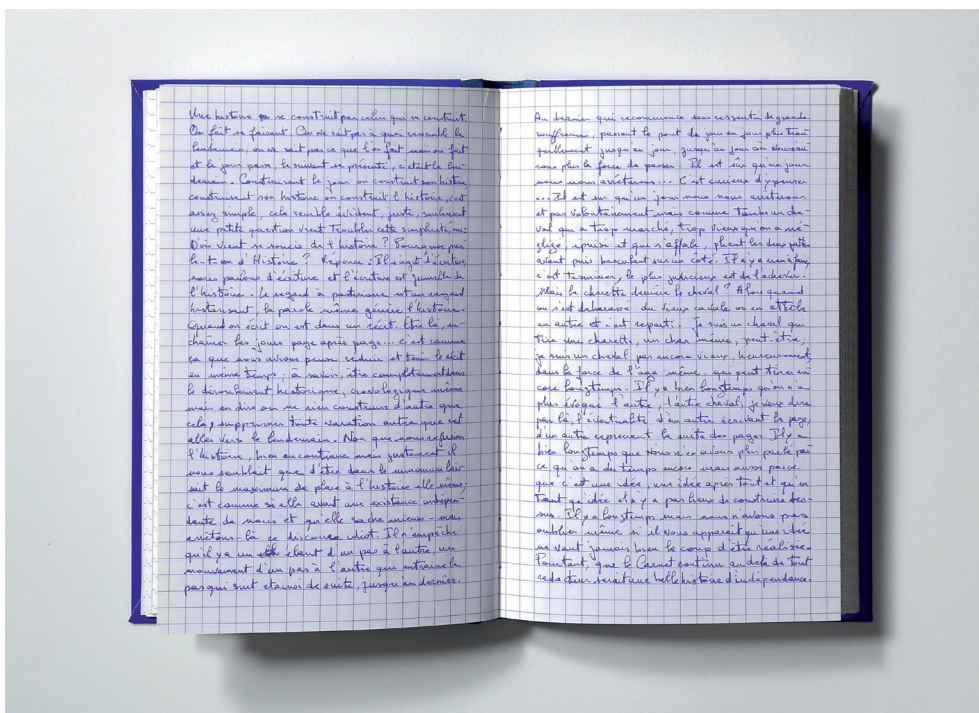 Une histoire se construit par celui qui se construit.
On fait se faisant. On ne sait pas à quoi ressemble le
lendemain, on ne sait pas ce que l'on fait mais on fait
et le jour passe, le suivant se présente, c'était le len-
demain. Construisant le jour on construit son histoire
construisant son histoire on construit l'histoire, c'est
assez simple, cela semble évident, juste, seulement
une petite question vient troubler cette simplicité:
D'où vient ce soucis de l'histoire ? Pourquoi par
le-t-on d'Histoire ? Réponse : Il s'agit d'écriture,
nous parlons d'écriture et l'écriture est jumelle de
l'histoire. Le regard à posteriori est un regard
historisant, la parole même génère l'histoire.
Quand on écrit on est dans un récit. Etre là, en-
chaîner les jours page après page... c'est comme
ça que nous avons pensé réduire et tenir le récit
en même temps : à savoir, être complètement dans
le déroulement historique, chronologique même
mais en dire ou ne rien construire d'autre que
cela, supprimer toute narration autre que cet
aller vers le lendemain. Non que nous refusions
l'histoire, bien au contraire mais justement il
nous semblait que d'être dans le minimum lais-
sait le maximum de place à l'histoire elle même,
c'est comme si elle avait une existence indépen-
dante de nous et qu'elle sache mieux - nous
arrêtons là ce discours idiot. Il n'empêche
qu'il y a un élant d'un pas à l'autre, un
mouvement d'un pas à l'autre que entraîne le
pas qui suit et ainsi de suite, jusqu'au dernier.
Au dernier qui recommence sans ressentir de grande
souffrance, passant le pont de jour en jour plus tran-
quillement jusqu'au jour, jusqu'au jour où nous n'au-
rons plus la force de passer. Il est sûr qu'un jour
nous nous arrêterons... C'est curieux d'y penser
... Il est sûr qu'un jour nous nous arrêterons
et pas volontairement mais comme tombe un che-
val qui a trop marché, trop vieux qu'on a né-
gligé, épuisé et qui s'affale, pliant les deux pattes
avant puis basculant sur un côté. Il n'y a rien à faire,
c'est terminé, le plus judicieux est de l'achever.
Mais la charette derrière le cheval ? Alors quand
on s'est débarassé du vieux cavale on en attèle
un autre et c'est reparti. Je suis un cheval qui
tire une charette, un char même, peut-être,
je suis un cheval pas encore vieux, heureusement,
dans la force de l'âge même, qui peut tirer en
core longtemps. Il y a bien longtemps qu'on n'a
plus évoqué l'autre, l'autre cheval, je veux dire
par là, l'éventualité d'un autre écrivant la page,
d'un autre reprenant la suite des pages. Il y a
bien longtemps que nous n'en avons plus parlé par
ce qu'on a du temps encore mais aussi parce
que c'est une idée, une idée après tout et qu'en
tant qu'idée il n'y a pas lieu de construire des-
sus. Il y a longtemps mais nous n'avons pas
oublier même si il nous apparaît qu'une idée
ne vaut jamais bien le coup d'être réalisée.
Pourtant, que le Carnet continu au delà de tout
rédacteur serait une belle histoire d'indépendance.